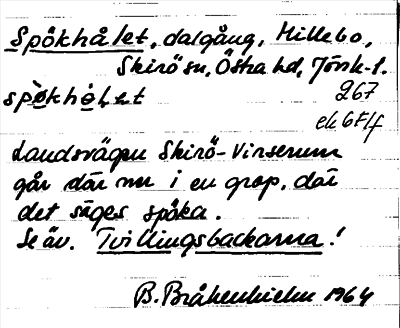 Spökhålet, dalgång, Hillebo,
Skirö sn, Östra hd, Jönk. l.
spökhålet
267
ek 6F1f
Landsvägen Skirö-Virserum
går där nu i en grop, där
det säges spöka.
Se äv. Tvillingsbackarna!
B. Bråkenhielm 1964